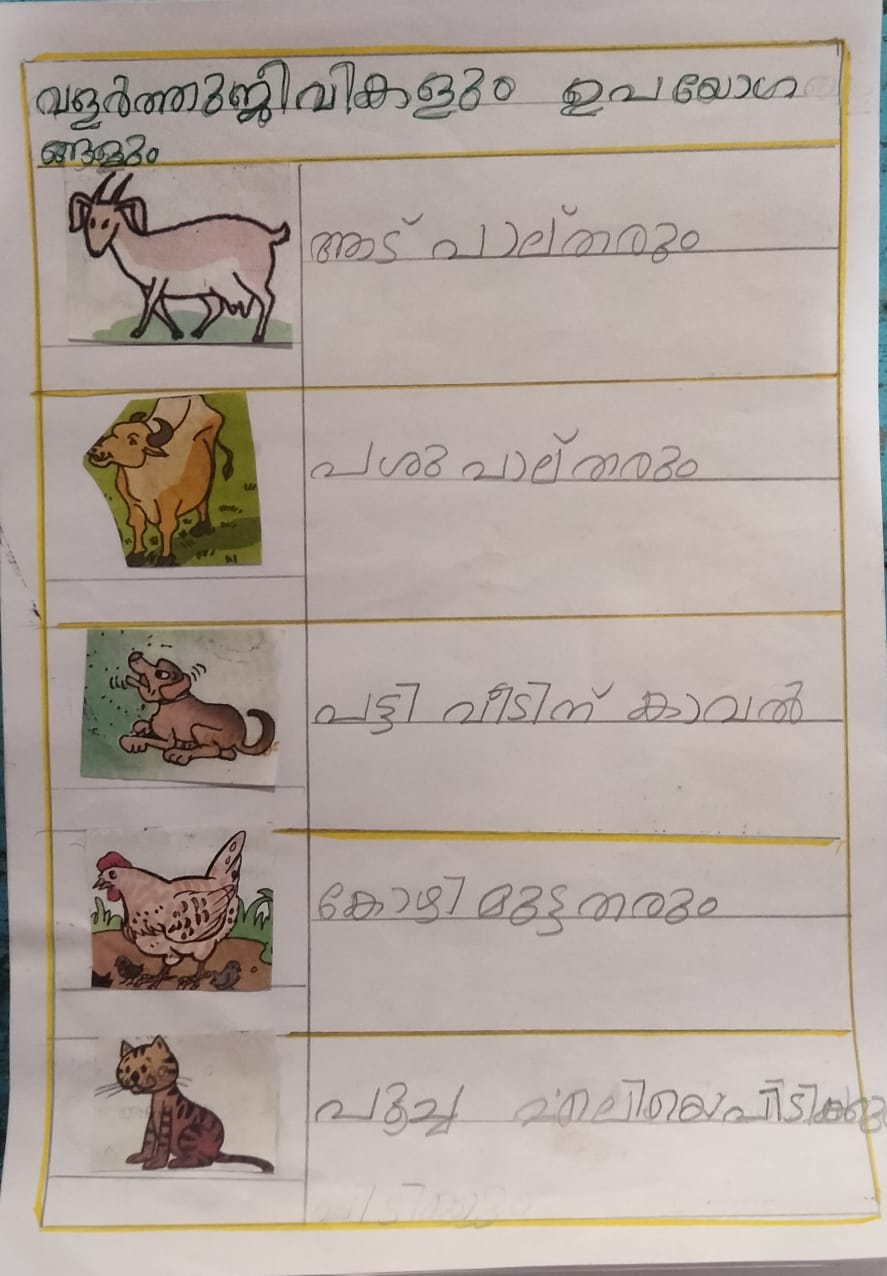 വളർത്തുജീവികളും ഉപയോഗ
ങ്ങളും
ആട് പാല് തരും
പശു പാല് തരും
പട്ടി വീടിന് കാവൽ
കോഴി മുട്ട തരും
പൂച്ച എലിയെ പിടിക്കും